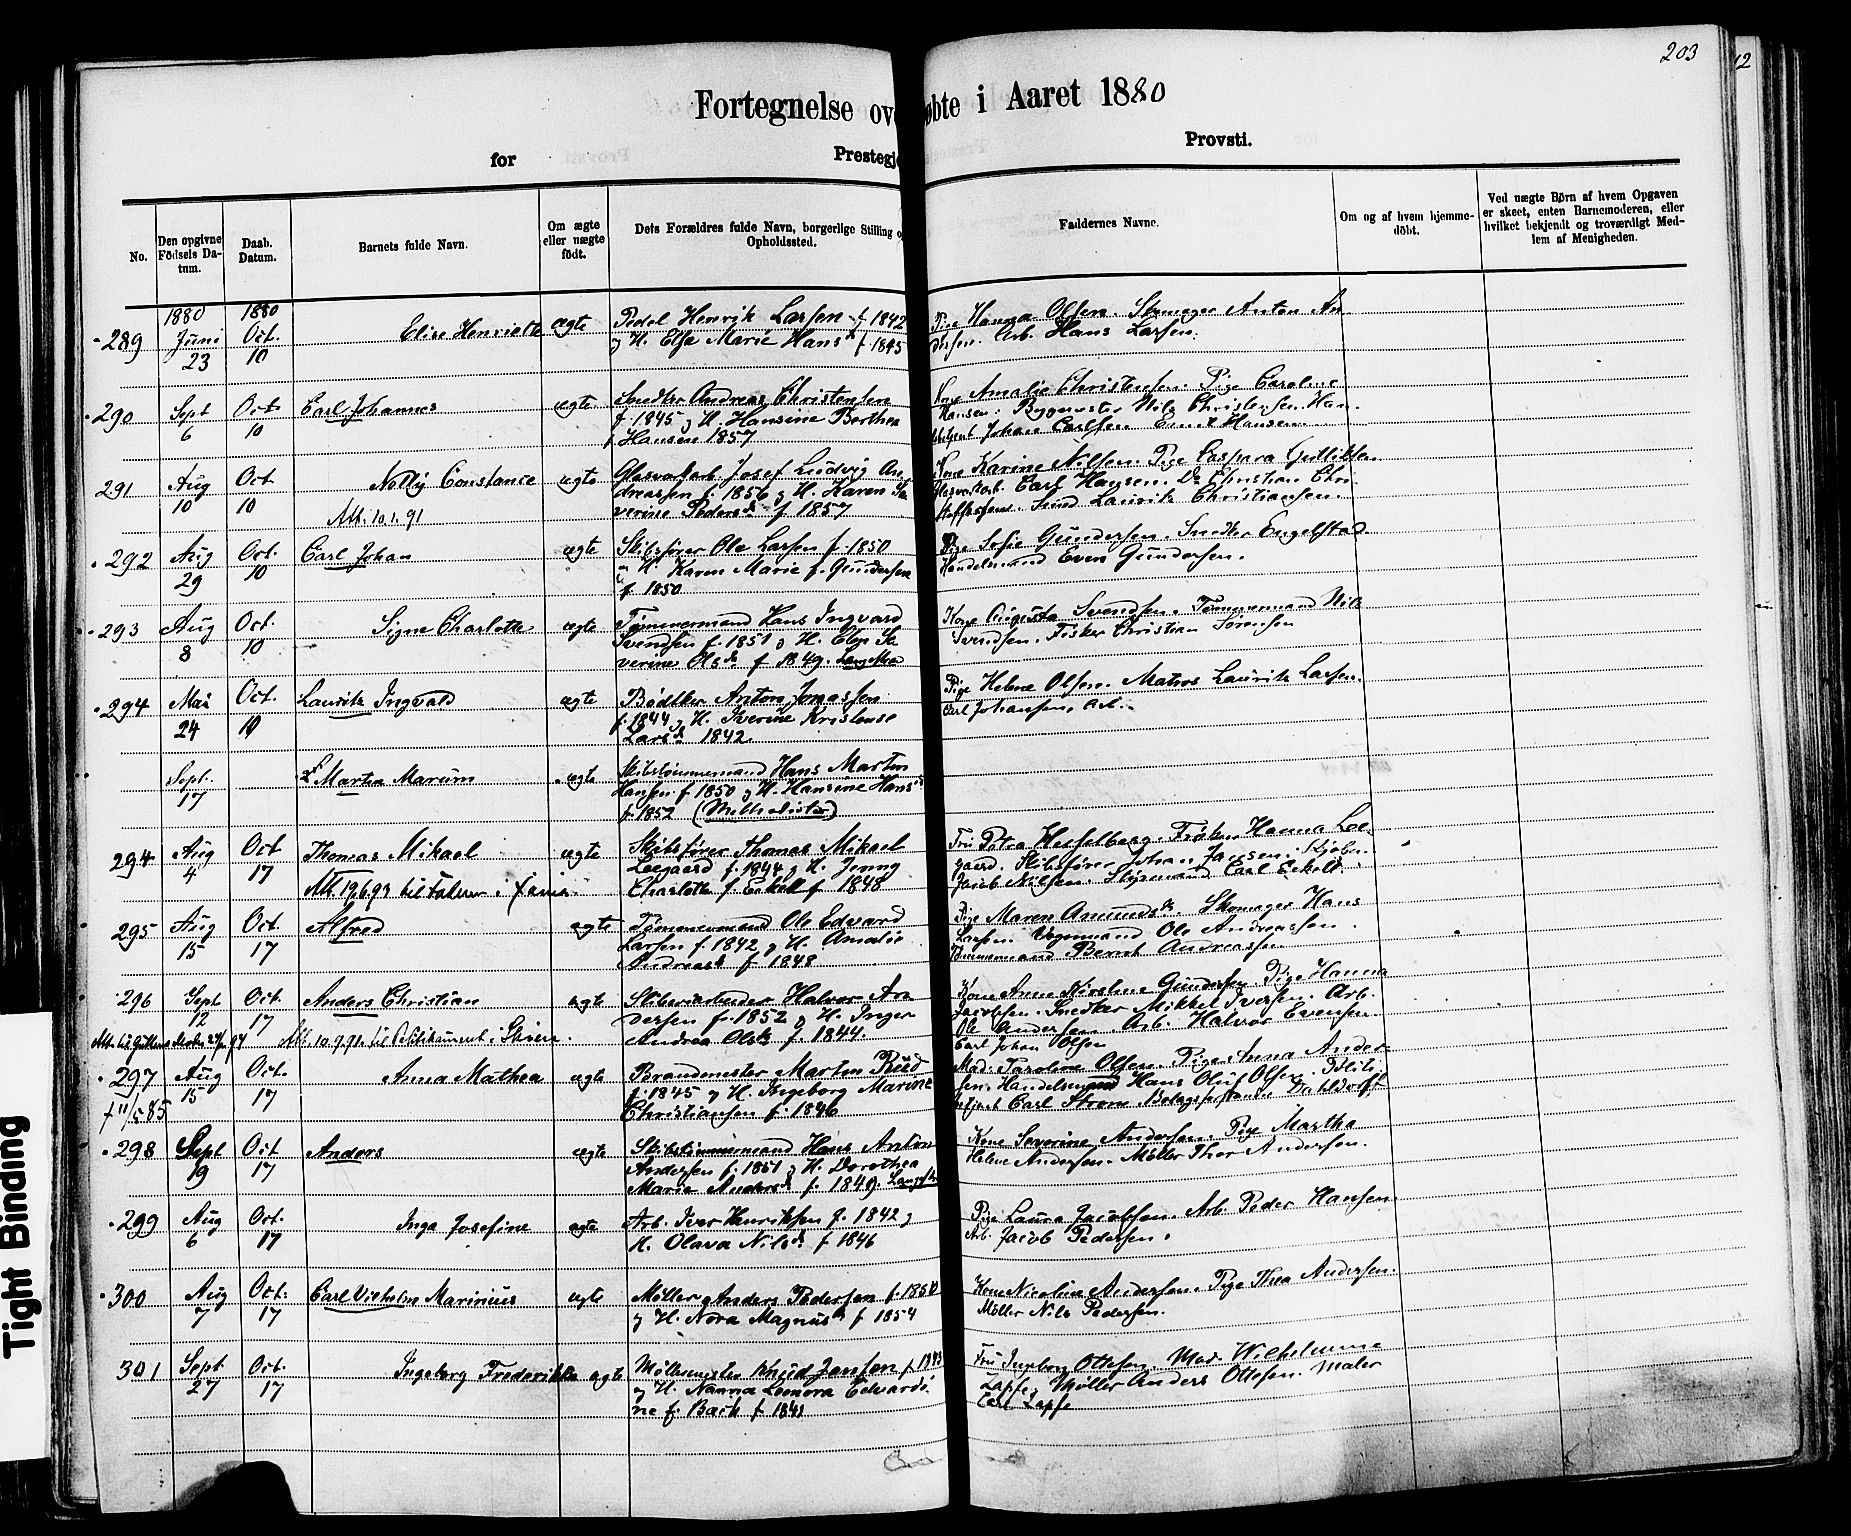 203
12
Fortegnelse ov øbte i Aaret 1880
for Prestegj Provsti.
No.
Den opgivne Födsels Da-
tum.
Daab.
Datum.
Barnets fulde Navn.
Om ægte
eller uægte
födt.
Dets Forældres fulde Navn, borgerlige Stilling o
Opholdssted.
Faddernes Navne.
Om og af hvem hjemme-
döbt.
Ved uægte Börn af hvem Opgaven
er skeet, enten Barnemoderen, eller
hvilket bekjendt og troværdigt Med-
lem af Menigheden.
289 1880 Juni 23 1880 Oct. 10 Elise Henriette ægte
Pedel Henrik Larsen f 1842
og H. Else Marie Hans f. 1845
Pige Hanna Olsen. Skomager Anton An
dersen. Arb. Hans Larsen.
290 Sept 6 Oct 10 Carl Johannes ægte
Snedker Andreas Christensen
f 1845 og H. Hansine Berthea
f Hansen 1857
Kone Amalie Christensen. Pige Caroline
Hansen. Bygmester Nils Christensen. Han-
Johan Carlsen Hansen.
291 Aug 10 Oct 10 Nelly Constance ægte
Att. 10.1.91
Glasværkarb. Josef Ludvig An-
dreassen f. 1856 og H. Karen Se
verine Pedersd. f. 1857
Kone Karine Nilsen. Pige Caspara Gulliksen
Glasværkarb. Carl Hansen. Do Christian Chri
stoffersen. Smed Lauritz Christiansen.
292 Aug 29 Oct. 10 Carl Johan ægte
Skibsfører Ole Larsen f. 1850
og H. Karen Marie f. Gundersen
f. 1850
Pige Sofie Gundersen. Snedker Engelstad
Handelsmand Even Gundersen.
293 Aug 8 Oct. 10 Signe Charlotte ægte
Tømmermand Hans Ingvard
Svendsen f. 1851 og H. Elen Se
verine Olsd. f 1849.
Kone Augusta Svendsen. Tømmermand Nils
Svendsen. Fisker Christian Sørensen
294 Mai 24 Oct. 10 Lauritz Ingvald ægte
Bødker Anton Jonassen
f. 1844 og H. Iverine Kristense
Larsd. 1842.
Pige Helene Olsen. Matros Lauritz Larsen.
Carl Johansen, Arb.
Sept. 17 Martin Marum ægte
Skibstømmermand Hans Martin
Hansen f 1850 og H. Hansine Hansd
f. 1852 (Methodister)
294 Aug 4 Oct 17 Thomas Mikael ægte
Skibsfører Thomas Mikael
Leegaard f. 1844 og H. Jenny
Charlotte f. f 1848
Fru Petra Hesselberg. Frøken Hanna Lee-
gaard. Skibsfører Johan Jansen. Skibsr.
Jacob Nilsen. Styrmand Carl
295 Aug 15 Oct. 17 Alfred ægte
Tømmermand Ole Edvard
Larsen f. 1842 og H. Amalie
Andreasd. f 1848
Pige Maren Amundsd. Skomager Hans
Larsen. Vognmand Ole Andreassen.
Tømmermand Bernt Andreassen
296 Sept 12 Oct. 17 Anders Christian ægte
Skiberiarbeider Halvor An
dersen f. 1852 og H. Inger
Andrea Olsd. f. 1844.
Kone Anne Kirstine Gundersen. Pige Hanna
Jacobsen. Snedker Mikkel Iversen. Arb.
Ole Andersen. Arb. Halvor Evensen
Carl Johan Olsen
297 Aug 15 Oct. 17 Anna Mathea ægte
Brandmester Martin Ruud
f. 1845 og H. Ingeborg Marine
Christiansen f. 1846
Mad. Karoline Olsen. Pige Anna Ander-
sen. Handelsmand Hans Oluf Olsen. Politi-
betjent Carl Strøm
298 Sept 19 Oct 17 Anders ægte
Skibstømmermand Hans Anton
Andersen f. 1851 og H. Dorothea
Marie Andersd. f. 1849
Kone Severine Andersen. Pige Martha
Helene Andersen. Møller Thor Andersen.
299 Aug 6 Oct. 17 Inga Josefine ægte
Arb. Iver Henriksen f. 1842 og
H. Olava Nilsd. f 1846
Pige Laura Jacobsen. Arb Peder Hansen
Arb. Jacob Pedersen.
300 Aug 7 Oct. 17 Carl Vilhelm Marinius ægte
Møller Anders Pedersen f. 1850
og H. Nora Magnusd. f 1854
Kone Nicoline Andersen. Pige Thea Andersen.
Møller Nils Pedersen.
301 Sept. 27 Oct. 17 Ingeborg Frederikke ægte
Møllemester Knud Jansen f. 1843
og H. Nanna Leonora Edvardi
ne f. Bach f 1841
Fru Ingeborg Ottesen. Mad. Wilhelmine
Lapse, Møller Anders Ottesen. Maler
Carl Lapse
Tight Binding